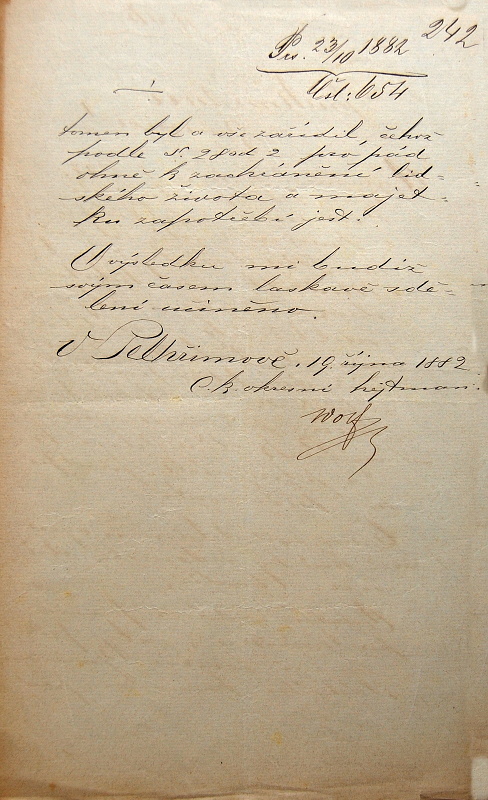 242
Prs. 23/10 1882
Čsl: 654
tomen byl a vše zařídil, čehož
podle §. 28 od 2 pro pád
ohně k zachránění lid-
ského života a majet-
ku zapotřebí jest.
O výsledku mi budiž
svým časem laskavě sdě-
lení učiněno.
V Pelhřimově, 19. října 1882.
C. k. okresní hejtman: